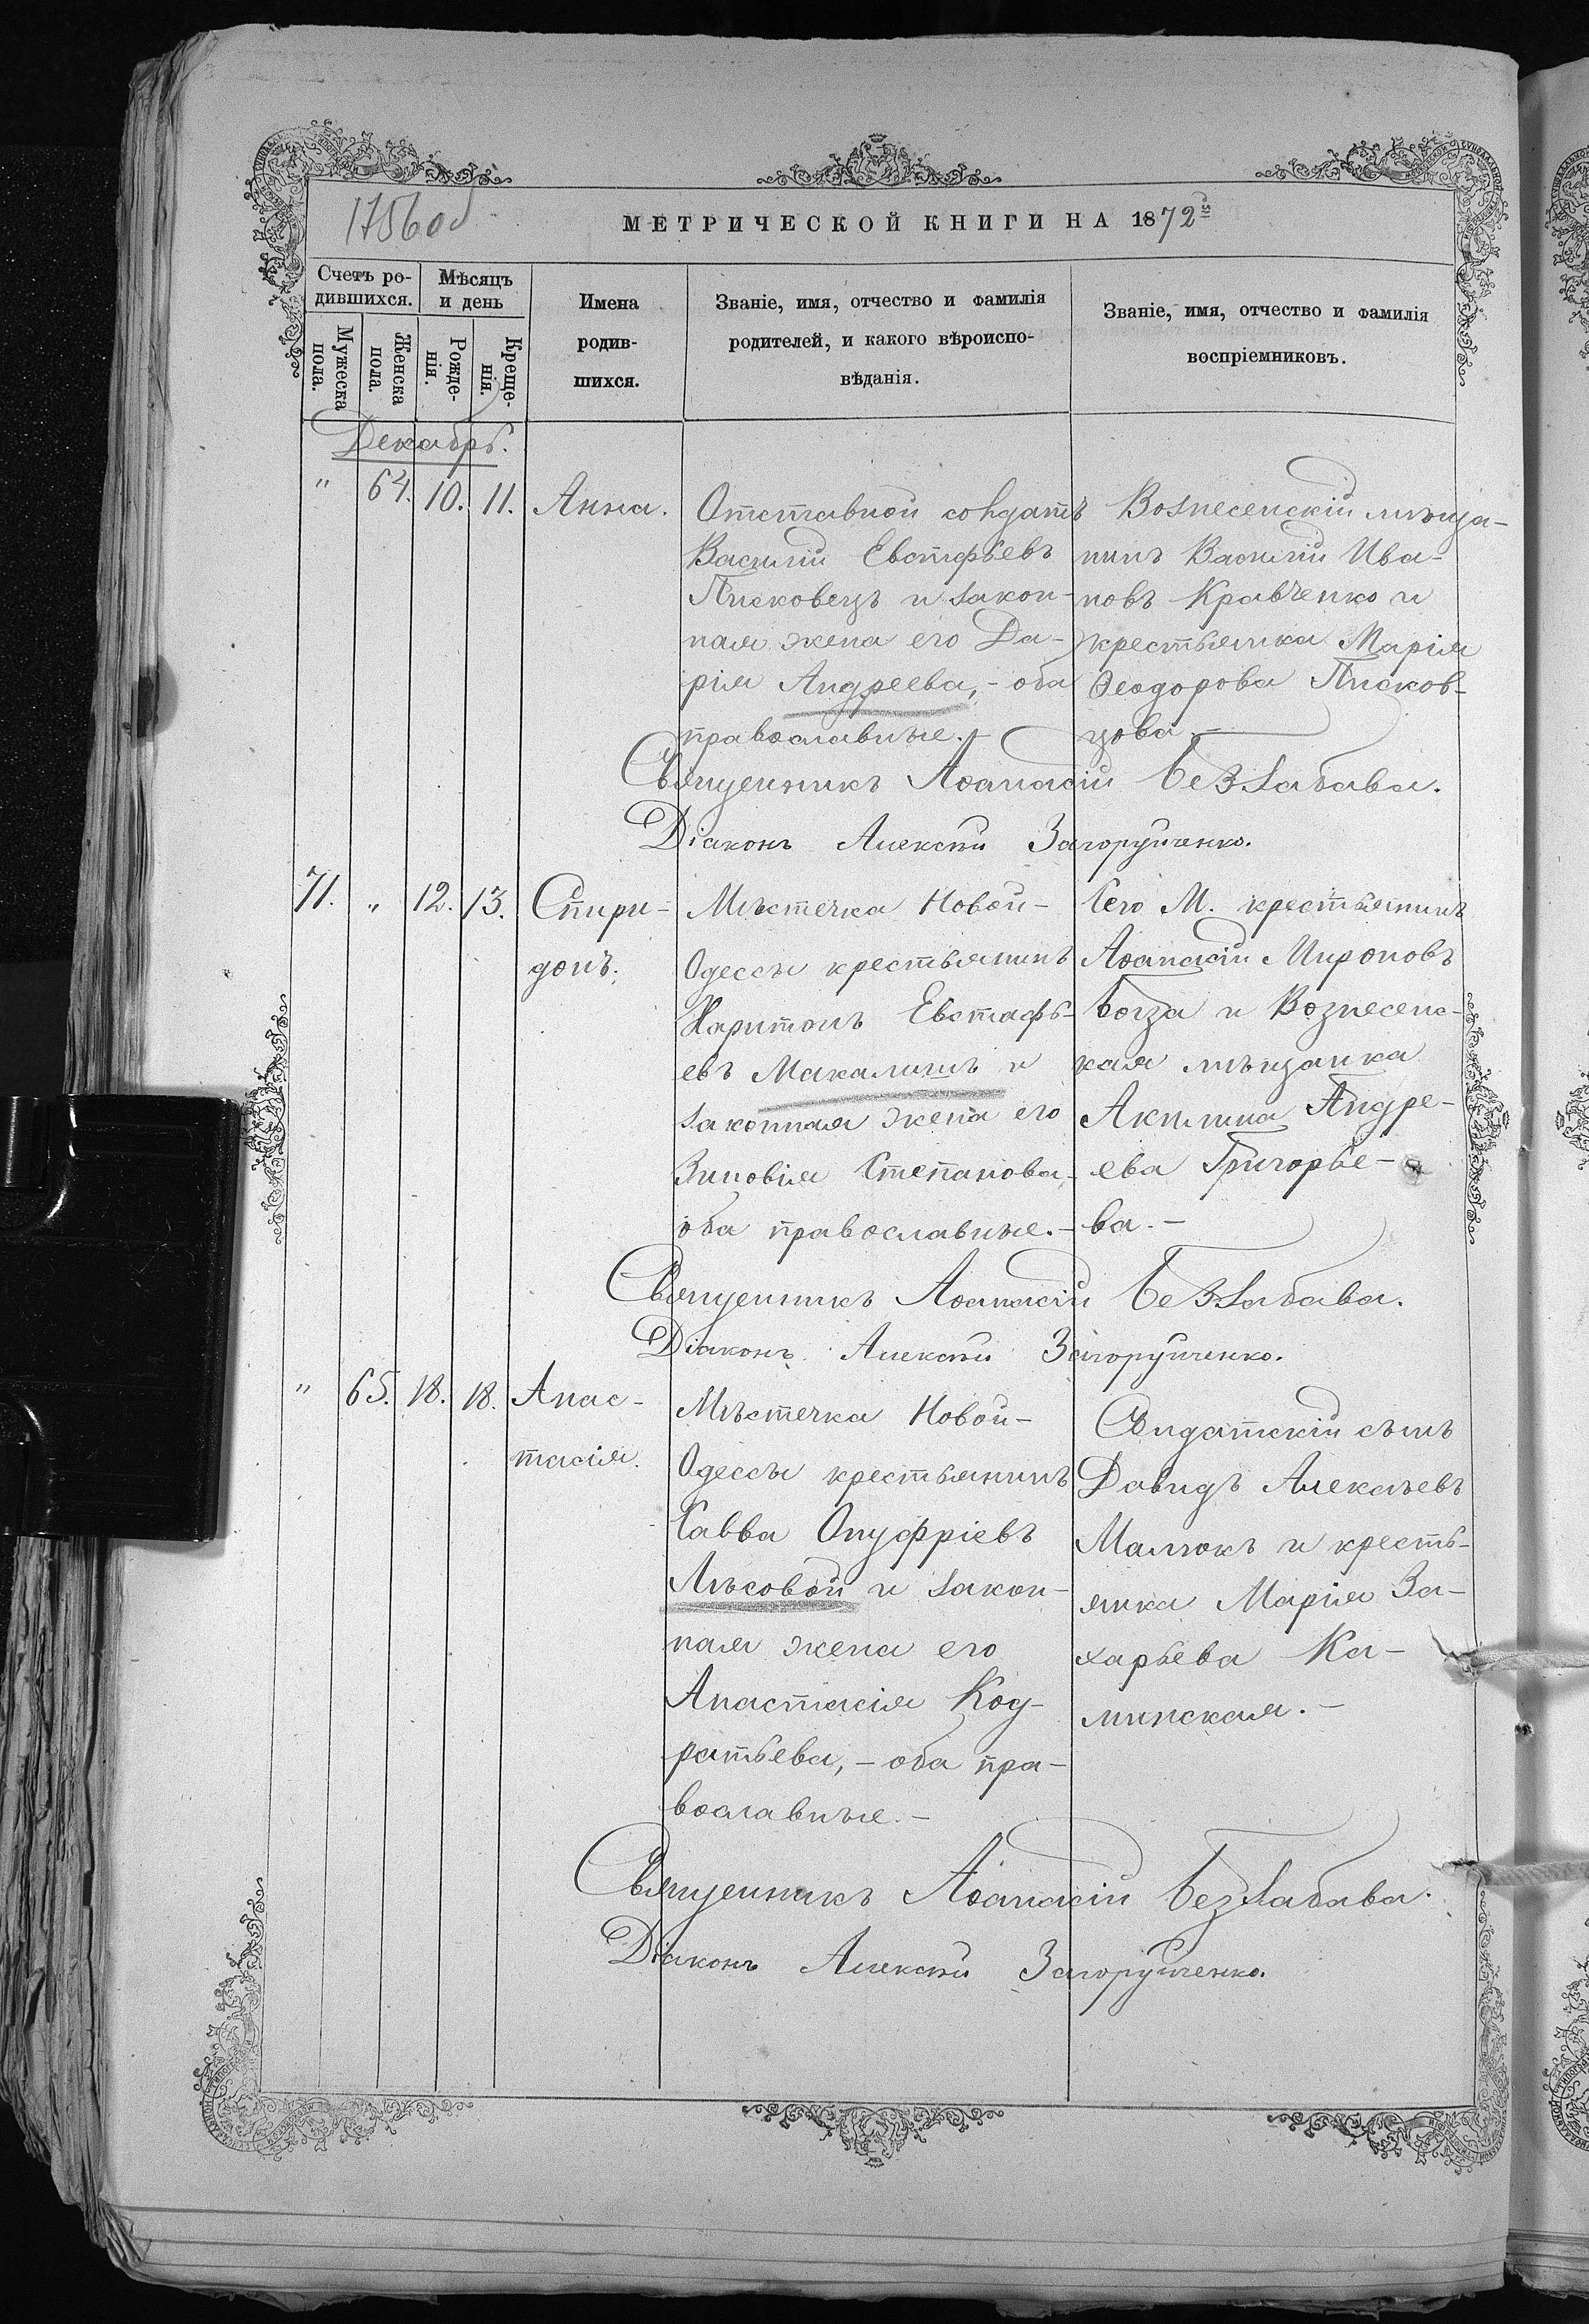 1756об
МЕТРИЧЕСКОЙ КНИГИ НА 1872й
Счетъ ро-
дившихся.
Мѣсяцъ
и день
Мужеска
пола.
Женска
пола.
Рожде-
нія.
Креще-
нія.
Имена
родив-
шихся.
Званіе, имя, отчество и фамилія
родителей, и какого вѣроиспо-
вѣданія.
Званіе, имя, отчество и фамилія
воспріемниковъ.
Декабрь.
" 64. 10. 11. Анна.
Отставной солдатъ
Василій Евстафьевъ
Писковецъ и закон-
ная жена его Да-
рія Андреева, - оба
православные. -
Вознесенскій мѣща-
нинъ Василій Ива-
новъ Кравченко и
крестьянка Марія
ѲеодороваПисков-
цова. -
Священникъ Аѳанасій Беззабава.
Діаконъ Алексѣй Загоруйченко.
71. " 12. 13. Спири-
донъ.
Мѣстечка Новой-
Одессы крестьянинъ
Харитонъ Евстафь-
евъ Макалишъ и
законная жена его
Зиновія Степанова,
оба православные. -
Сего М. крестьянинъ
Аѳанасій Мироновъ
Богза и Вознесенс-
кая мѣщанка
Акилина Андре-
ева Григорье-
ва. -
Священникъ Аѳанасій Беззабава.
Діаконъ Алексѣй Загоруйченко.
" 65. 18. 18. Анас-
тасія.
Мѣстечка Новой-
Одессы крестьянинъ
Савва Онуфріевъ
Лѣсовой и закон-
ная жена его
Анастасія Код-
ратьева, - оба пра-
вославные. -
Солдатскій сынъ
Давидъ Алексѣевъ
Малюкъ и кресть-
янка Марія За-
харьева Ка-
минская. -
Священникъ Аѳанасій Беззабава.
Діаконъ Алексѣй Загоруйченко.